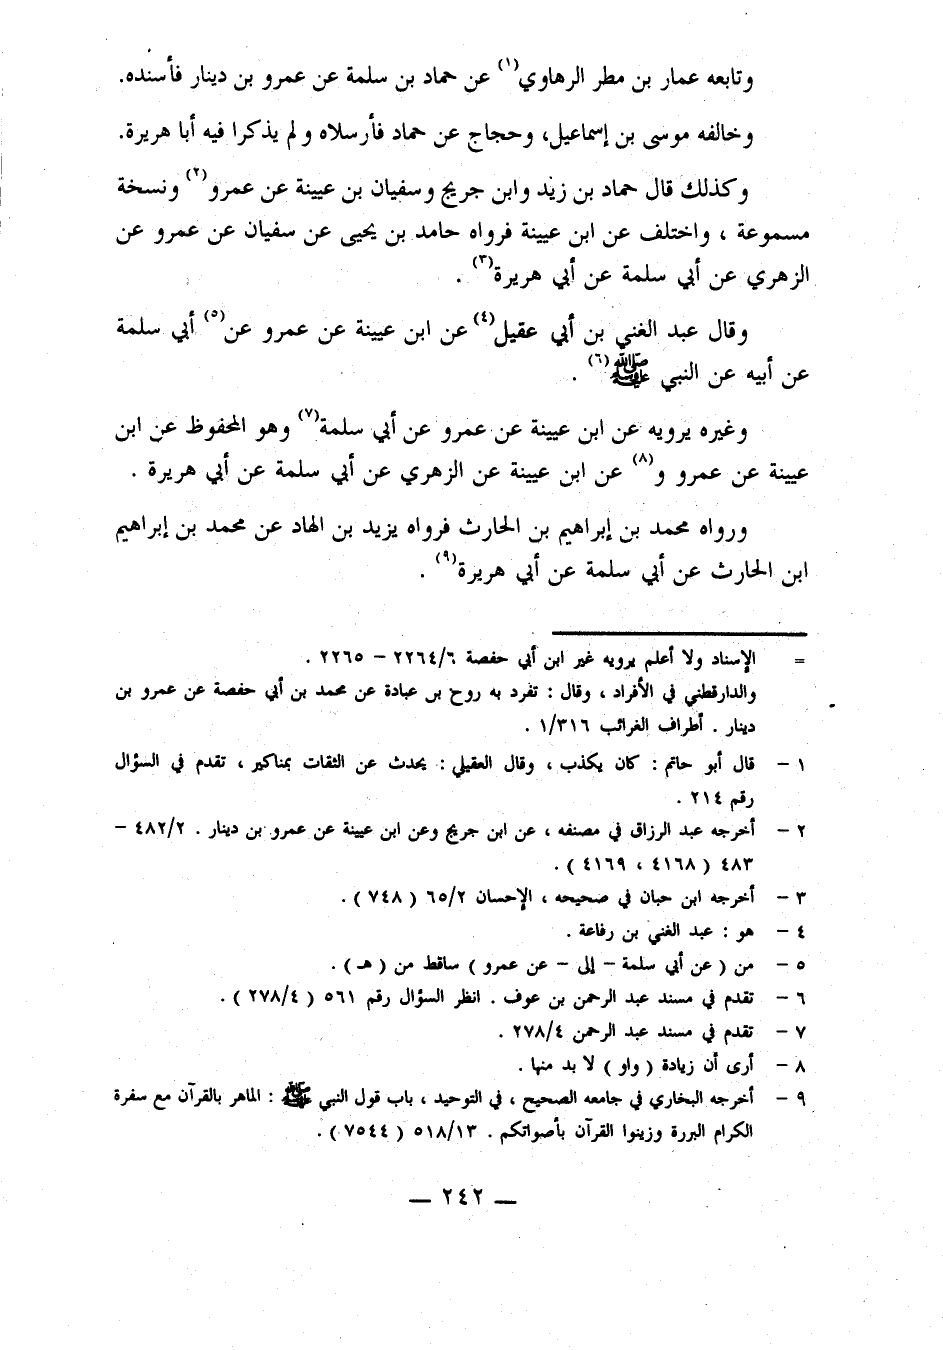 وتابعه عمار بن مطر الرهاوي(١) عن حماد بن سلمة عن عمرو بن دينار فأسنده.
وخالفه موسى بن إسماعيل، وحجاج عن حماد فأرسلاه ولم يذكرا فيه أبا هريرة.
وكذلك قال حماد بن زيد وابن جريج وسفيان بن عيينة عن عمرو(٢) ونسخة
مسموعة ، واختلف عن ابن عيينة فرواه حامد بن يحيى عن سفيان عن عمرو عن
الزهري عن أبي سلمة عن أبي هريرة(٣) .
وقال عبد الغني بن أبي عقيل(٤) عن ابن عيينة عن عمرو عن(٥) أبي سلمة
عن أبيه عن النبي ﷺ(٦) .
وغيره يرويه عن ابن عيينة عن عمرو عن أبي سلمة(٧) وهو المحفوظ عن ابن
عيينة عن عمرو و(٨) عن ابن عيينة عن الزهري عن أبي سلمة عن أبي هريرة .
ورواه محمد بن إبراهيم بن الحارث فرواه يزيد بن الهاد عن محمد بن إبراهيم
ابن الحارث عن أبي سلمة عن أبي هريرة(٩) .
= الإسناد ولا أعلم يرويه غير ابن أبي حفصة ٢٢٦٤/٦ – ٢٢٦٥ .
والدارقطني في الأفراد ، وقال : تفرد به روح بن عبادة عن محمد بن أبي حفصة عن عمرو بن
دينار . أطراف الغرائب ١/٣١٦ .
١ – قال أبو حاتم : كان يكذب ، وقال العقيلي : يحدث عن الثقات بمناكير ، تقدم في السؤال
رقم ٢١٤ .
٢ – أخرجه عبد الرزاق في مصنفه ، عن ابن جريج وعن ابن عيينة عن عمرو بن دينار . ٤٨٢/٢ –
٤٨٣ ( ٤١٦٨ ، ٤١٦٩ ) .
٣ – أخرجه ابن حبان في صحيحه ، الإحسان ٦٥/٢ ( ٧٤٨ ) .
٤ – هو : عبد الغني بن رفاعة .
٥ – من ( عن أبي سلمة – إلى – عن عمرو ) ساقط من ( هـ ) .
٦ – تقدم في مسند عبد الرحمن بن عوف . انظر السؤال رقم ٥٦١ ( ٢٧٨/٤ ) .
٧ – تقدم في مسند عبد الرحمن ٢٧٨/٤ .
٨ – أرى أن زيادة ( واو ) لا بد منها .
٩ – أخرجه البخاري في جامعه الصحيح ، في التوحيد ، باب قول النبي ﷺ : الماهر بالقرآن مع سفرة
الكرام البررة وزينوا القرآن بأصواتكم . ٥١٨/١٣ ( ٧٥٤٤ ) .
— ٢٤٢ —